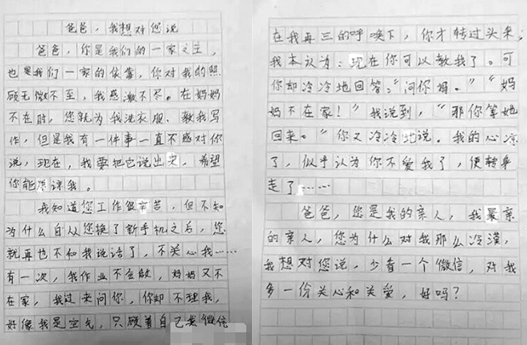 爸爸,我想对您说
爸爸,你是我们的一家之主,
也是我们一家的依靠,你对我的照
顾无微不至,我感激不尽。在妈妈
不在时,您就为我洗衣服、教我写
作,但是我有一件事一直不感对你
说,现在,我要把它说出来,希望
你能原谅我。
我知道您工作很辛苦,但不知
为什么自从您换了新手机之后,您
就再也不和我说话了,不关心我……
有一次,我作业不会做,妈妈又不
在家,我过来问你,你却不理我,
好像我是空气,只顾着自己 微信
在我再三的呼唤下,你才转过头来,
我本认为:现在你可以教我了。可
你却冷冷地回答:“问你妈。”“妈
妈不在家!”我说到,“那你等她
回来。”你又冷冷地说。我的心凉
了,似乎认为你不爱我了,便转身
走了……
爸爸,您是我的亲人,我最亲
的亲人,您为什么对我那么冷漠,
我想对您说,少看一个微信,对我
多一份关心和关爱,好吗?